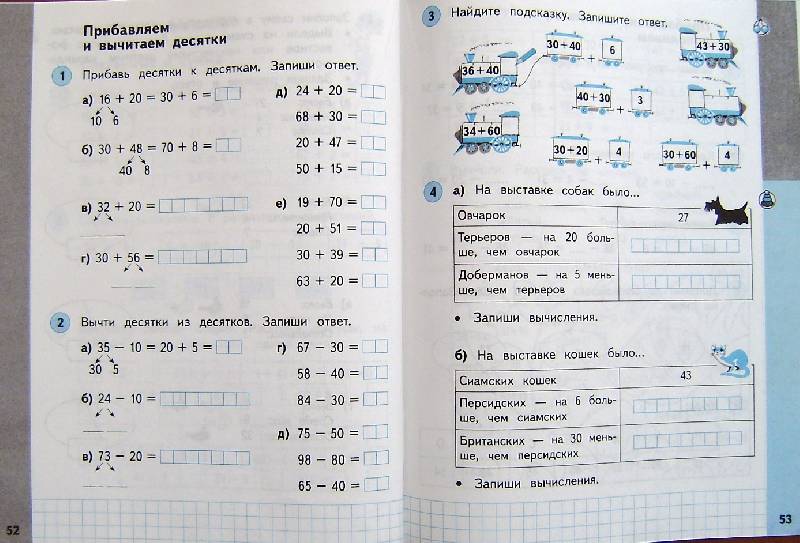 Прибавляем
и вычитаем десятки
1 Прибавь десятки к десяткам. Запиши ответ.
а) 16 + 20 = 30 + 6 =
10 6
б) 30 + 48 = 70 + 8 =
40 8
в) 32 + 20 =
г) 30 + 56 =
д) 24 + 20 =
68 + 30 =
20 + 47 =
50 + 15 =
е) 19 + 70 =
20 + 51 =
30 + 39 =
63 + 20 =
2 Вычти десятки из десятков. Запиши ответ.
а) 35 − 10 = 20 + 5 =
30 5
б) 24 − 10 =
в) 73 − 20 =
г) 67 − 30 =
58 − 40 =
84 − 30 =
д) 75 − 50 =
98 − 80 =
65 − 40 =
52
3 Найдите подсказку. Запишите ответ.
36 + 40
30 + 40 + 6
43 + 30
40 + 30 + 3
34 + 60
30 + 20 + 4
30 + 60 + 4
4 а) На выставке собак было...
Овчарок 27
Терьеров — на 20 боль-
ше, чем овчарок
Доберманов — на 5 мень-
ше, чем терьеров
• Запиши вычисления.
б) На выставке кошек было...
Сиамских кошек 43
Персидских — на 6 боль-
ше, чем сиамских
Британских — на 30 мень-
ше, чем персидских
• Запиши вычисления.
53